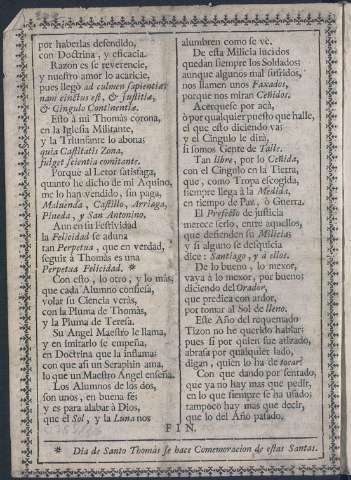 por haberlas defendido,
con Doctrina, y eficacia.
Razon es se reverencie,
y nuestro amor lo acaricie,
pues llegò ad culmen sapientiæ:
nam cinctus est, & justitiæ,
& Cingulo Continentiæ.
Esto à mi Thomàs corona,
en la Iglesia Militante,
y la Triunfante lo abona:
quia Castitatis Zona,
fulget scientia comitante.
Porque al Letor satisfaga,
quanto he dicho de mi Aquino,
me lo han vendido, sin paga,
Maluenda, Castillo, Arriaga,
Pineda, y San Antonino.
Aun en su Festividad
la Felicidad se aduna
tan Perpetua, que en verdad,
seguir à Thomàs es una
Perpetua Felicidad. *
Con esto, lo otro, y lo màs,
que cada Alumno confiesa,
volar su Ciencia veràs,
con la Pluma de Thomàs,
y la Pluma de Teresa.
Su Angel Maestro se llama,
y en imitarlo se empeña,
en Doctrina que la inflama:
con que asi un Seraphin ama,
lo que un Maestro Angel enseña.
Los Alumnos de los dos,
son unos, en buena fè;
y es para alabar à Dios,
que el Sol, y la Luna nos
alumbren como se vè.
De esta Milicia lucidos
quedan siempre los Soldados;
aunque algunos mal sufridos,
nos llamen unos Faxados,
porque nos miran Ceñidos.
Acerquese por acà,
ò por qualquier puesto que halle,
el que esto diciendo và;
y el Cingulo le dirà,
si somos Gente de Talle.
Tan libre, por lo Ceñida,
con el Cingulo en la Tierra,
que, como Tropa escogida,
siempre llega à la Medida,
en tiempo de Paz, ò Guerra.
El Prefecto de justicia
merece serlo, entre aquellos,
que defienden su Milicia;
y si alguno se desquicia
dice: Santiago, y à ellos.
De lo bueno, lo mexor,
vaya à lo mexor, por bueno;
diciendo del Orador,
que predica con ardor,
por tomar al Sol de lleno.
Este Año del requemado
Tizon no he querido hablar;
pues si por quien fue atizado,
abrasa por qualquier lado,
digan, quien lo ha de tocar?
Con que dando por sentado,
que ya no hay mas que pedir,
en lo que siempre se ha usado;
tampoco hay mas que decir,
que lo del Año pasado.
FIN.
* Dia de Santo Thomàs se hace Comemoracion de estas Santas.